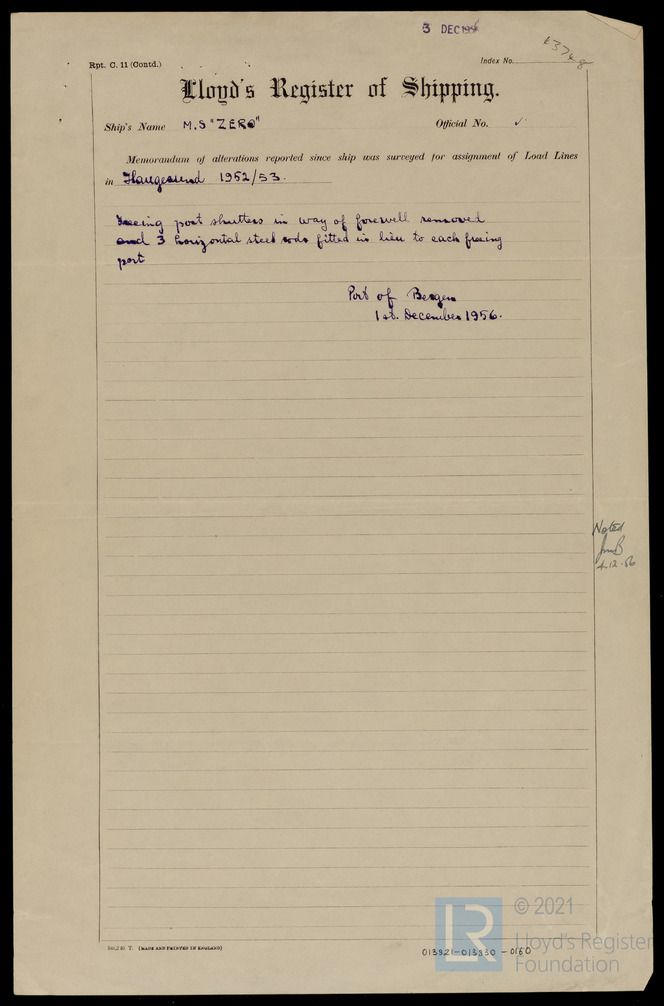 3 DEC 1956
Rpt. C. 11 (Contd.)
Index No.
Lloyd's Register of Shipping.
Ship's Name M.S "ZERO" Official No.
Memorandum of alterations reported since ship was surveyed for assignment of Load Lines
in Haugesund 1952/53.
Freeing port shutters in way of forewell removed
and 3 horizontal steel rods fitted in lieu to each freeing
port
Port of Bergen
1st. December 1956.
Noted
4.12.56
T. (MADE AND PRINTED IN ENGLAND)
013921-013930-0160
LR
© 2021
Lloyd's Register
Foundation